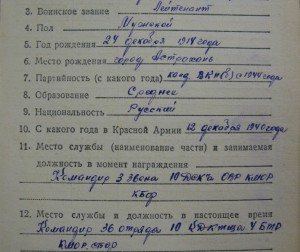 3. Воинское звание Лейтенант
4. Пол Мужской
5. Год рождения 24 декабря 1917 года
6. Место рождения город Астрахань
7. Партийность (с какого года) канд. ВКП(б) с 1944 года
8. Образование Среднее
9. Национальность Русский
10. С какого года в Красной Армии 12 декабря 1940 года
11. Место службы (наименование части) и занимаемая
должность в момент награждения
Командир 3 звена 10 ДСКа ОВР КМОР
КБОФ
12. Место службы и должность в настоящее время
Командир отряда 10
КМОР